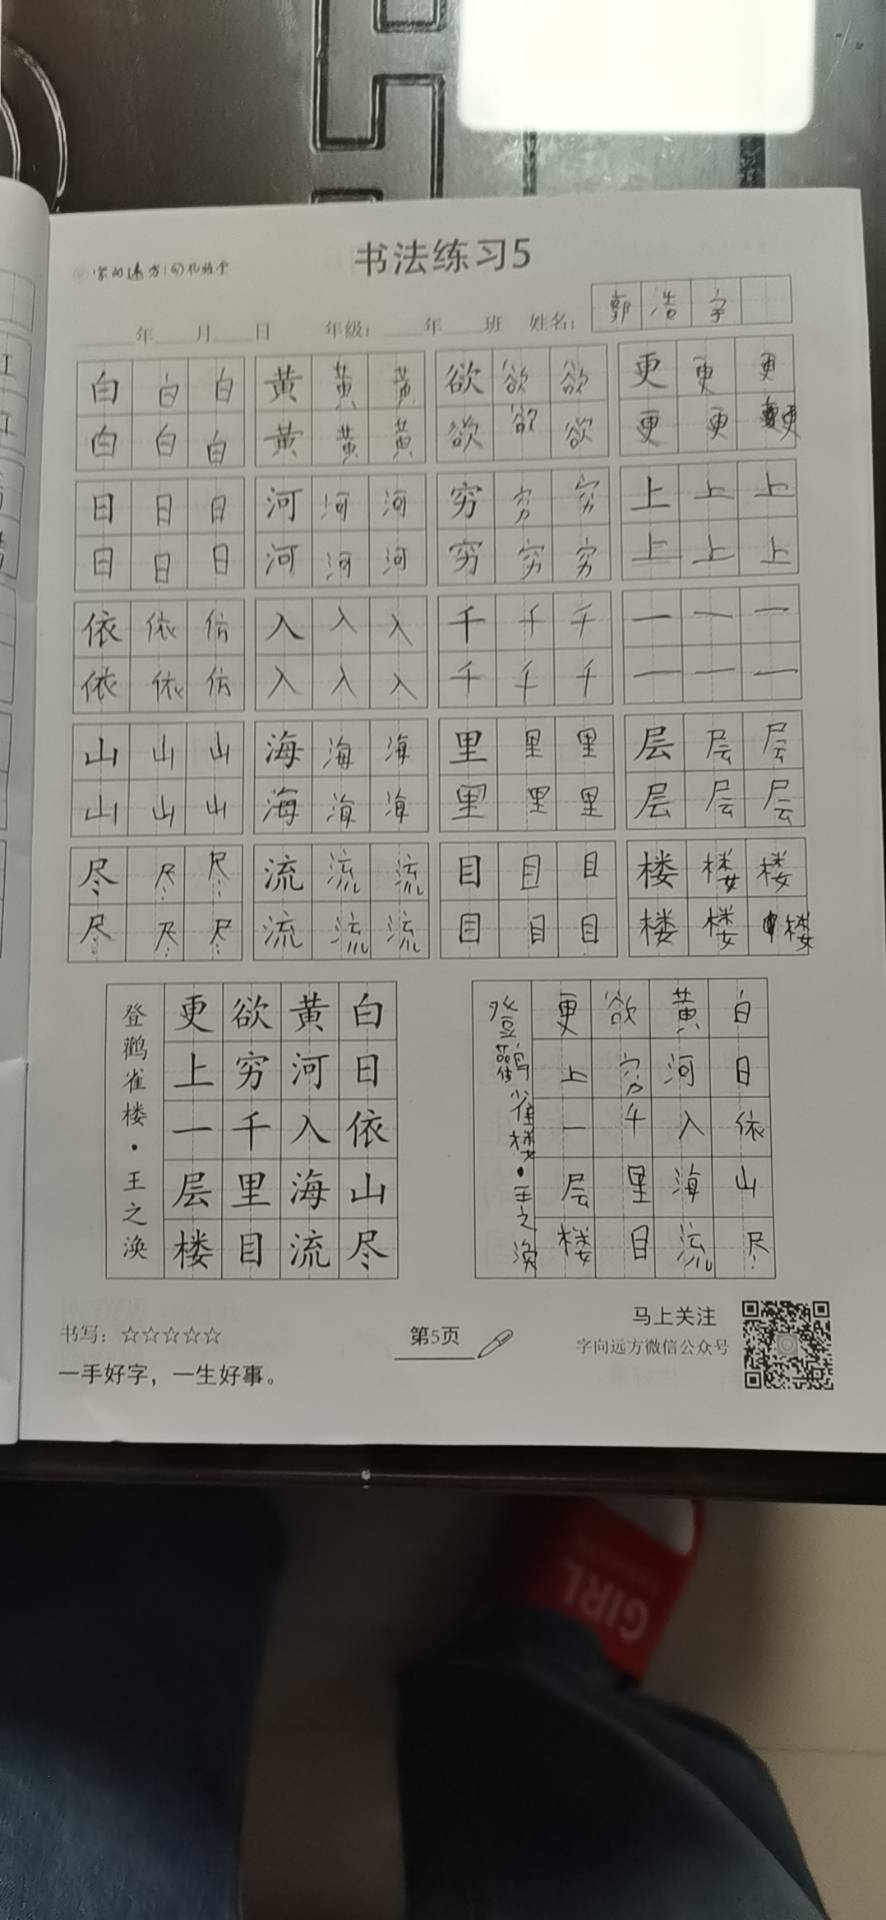 书法练习5
年 月 日 年级： 年 班 姓名： 郭 浩 宇
白 白 白 黄 黄 黄 欲 欲 欲 更 更 更
白 白 白 黄 黄 黄 欲 欲 欲 更 更 更
日 日 日 河 河 河 穷 穷 穷 上 上 上
日 日 日 河 河 河 穷 穷 穷 上 上 上
依 依 依 入 入 入 千 千 千 一 一 一
依 依 依 入 入 入 千 千 千 一 一 一
山 山 山 海 海 海 里 里 里 层 层 层
山 山 山 海 海 海 里 里 里 层 层 层
尽 尽 尽 流 流 流 目 目 目 楼 楼 楼
尽 尽 尽 流 流 流 目 目 目 楼 楼 楼
白日依山尽
黄河入海流
欲穷千里目
更上一层楼
登鹳雀楼·王之涣
白日依山尽
黄河入海流
欲穷千里目
更上一层楼
登鹳雀楼·王之涣
书写：☆☆☆☆☆
一手好字，一生好事。
第5页
马上关注
字向远方微信公众号
GIRL